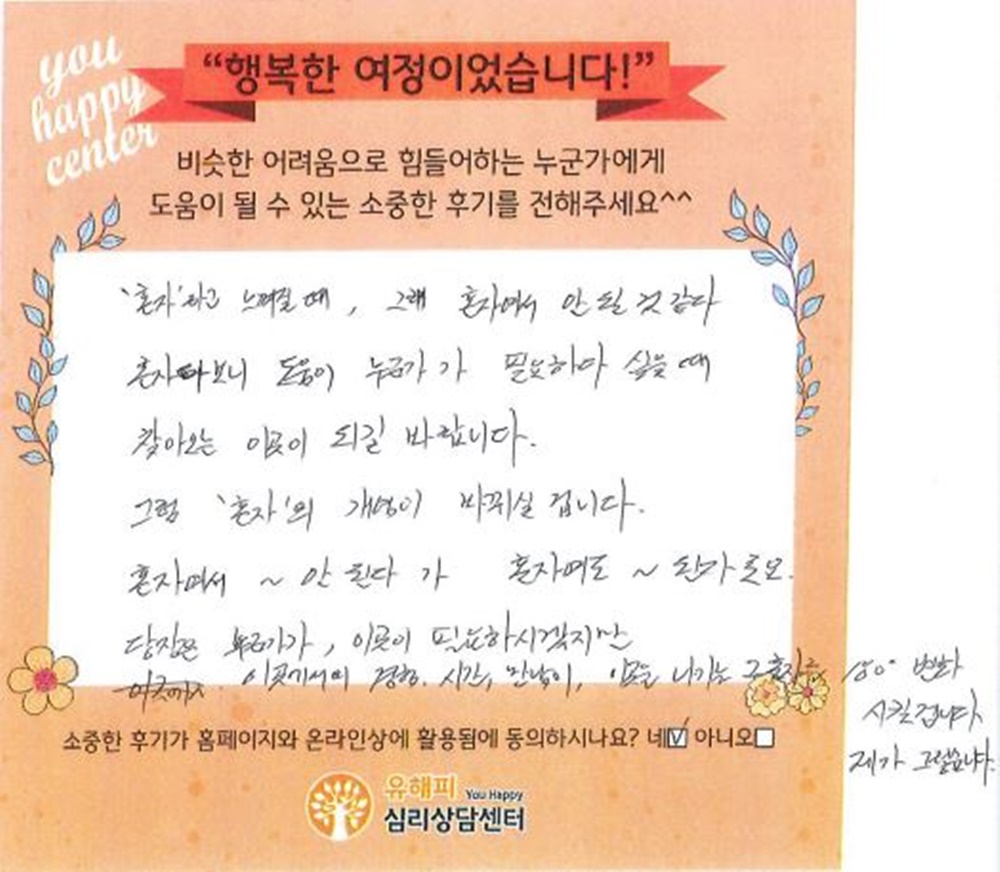 you
happy
center
“행복한 여정이었습니다!”
비슷한 어려움으로 힘들어하는 누군가에게
도움이 될 수 있는 소중한 후기를 전해주세요^^
'혼자'라고 느껴질 때, 그래 혼자여서 안 될 것 같다
혼자다보니 도움이 누군가가 필요하다 싶을 때
찾아오는 이곳이 되길 바랍니다.
그럼 '혼자'의 개념이 바뀌실 겁니다.
혼자여서 ~ 안 된다 가 혼자여도 ~ 된다 로요.
당장은 누군가가, 이곳이 필요하시겠지만
이곳에서의 경험, 시간, 만남이, 이곳을 나가는 그 혼자를 180° 변화
시킬겁니다
제가 그렇습니다.
소중한 후기가 홈페이지와 온라인상에 활용됨에 동의하시나요? 네☑ 아니오☐
유해피 You Happy
심리상담센터